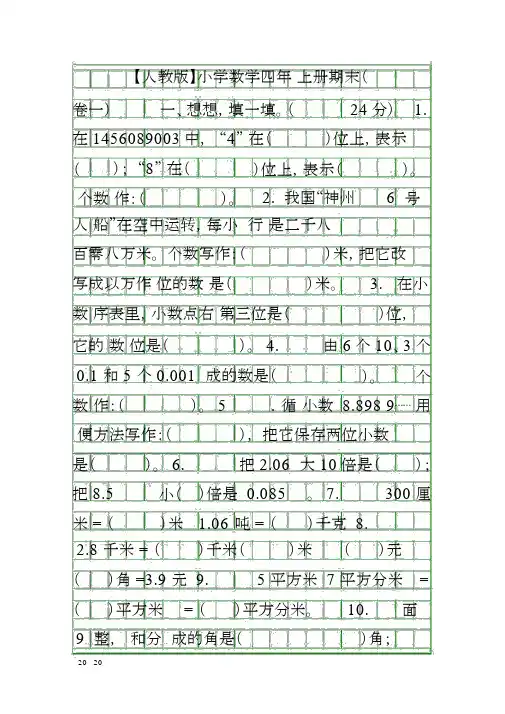 【人教版】小学数学四年 上册期末(
卷一) 一、想想，填一填。( 24 分) 1.
在 1456089003 中，“4” 在( )位上，表示
( )；“8” 在( )位上，表示( )。
个数 作：( )。 2. 我国“神州 6 号
人 船”在空中运转，每小 行 是二千八
百零八万米。个数写作：( )米，把它改
写成以万作 位的数 是( )米。 3. 在小
数 序表里，小数点右 第三位是( )位，
它的 数 位是( )。 4. 由 6 个 10、3 个
0.1 和 5 个 0.001 成的数是( )。 个
数 作：( )。 5 . 循 小数 8.898 9…… 用
便方法写作：( )， 把它保存两位小数
是( )。 6. 把 2.06 大 10 倍是( )；
把 8.5 小( )倍是 0.085 。 7. 300 厘
米 = ( )米 1.06 吨 = ( )千克 8.
2.8 千米 = ( )千米( )米 ( )元
( )角 =3.9 元 9. 5 平方米 7 平方分米 =
( )平方米 = ( )平方分米。 10. 面
9 整， 和分 成的角是( )角；
20 20